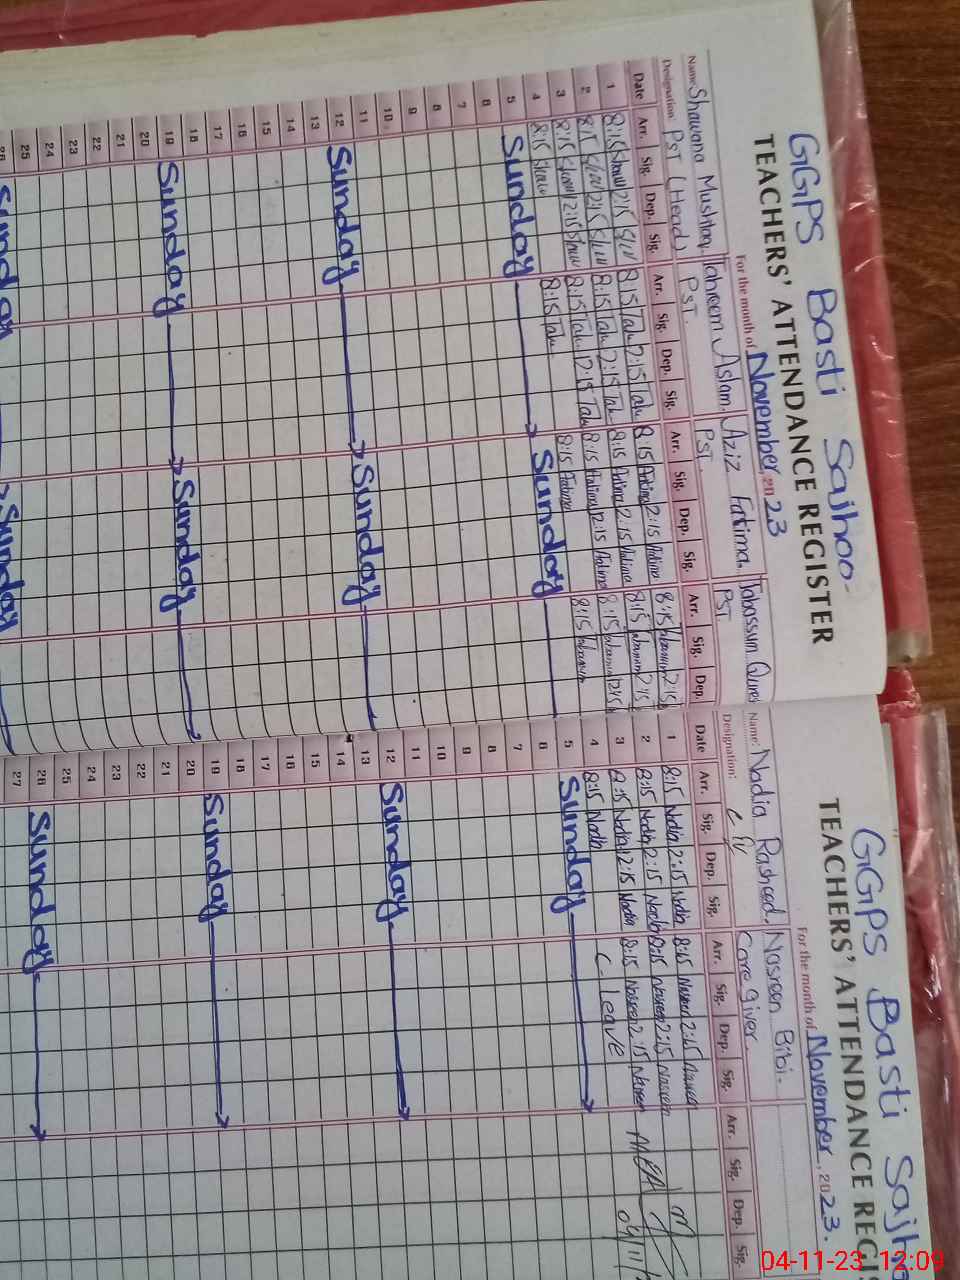 GGPS Basti Sajhoo-
TEACHERS' ATTENDANCE REGISTER
For the month of November, 2023
Name: Shawana Mushtaq. Tahreem Aslam. Aziz Fatima. Tabassum
Designation: PST (Head) PST. PST. PST.
Date Arr. Sig. Dep. Sig. Arr. Sig. Dep. Sig. Arr. Sig. Dep. Sig. Arr. Sig. Dep.
1 8:15 2:15 8:15 Tah 2:15 Tah 8:15 Fatima 2:15 Fatima 8:15 2:15
2 8:15 2:15 8:15 Tah 2:15 Tah 8:15 Fatima 2:15 Fatima 8:15 2:15
3 8:15 12:15 8:15 Tah 12:15 Tah 8:15 Fatima 12:15 Fatima 8:15 12:15
4 8:15 8:15 Tah 8:15 Fatima 8:15
5 Sunday Sunday
6
7
8
9
10
11
12 Sunday Sunday
13
14
15
16
17
18
19 Sunday Sunday
20
21
22
23
24
25
26 Sunday Sunday
GGPS Basti
TEACHERS' ATTENDANCE
For the month of November, 2023.
Name: Nadia Rasheed. Nasreen Bibi.
Designation: Care giver
Date Arr. Sig. Dep. Sig. Arr. Sig. Dep. Sig. Arr. Sig. Dep. Sig.
1 8:15 Nadia 2:15 Nadia 8:15 Nasreen 2:15 Nasreen
2 8:15 Nadia 2:15 Nadia 8:15 Nasreen 2:15 Nasreen
3 8:15 Nadia 12:15 Nadia 8:15 Nasreen 12:15 Nasreen
4 8:15 Nadia C-leave
5 Sunday
6
7
8
9
10
11
12 Sunday
13
14
15
16
17
18
19 Sunday
20
21
22
23
24
25
26 Sunday
27
04-11-23 12:09